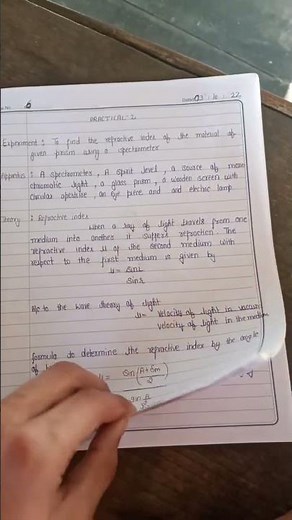 PRACTICAL-1
Experiment : To find the refractive index of the material of
given prism using a spectrometer
Apparatus : A spectrometer, A spirit level, a source of mono
chromatic light, a glass prism, a wooden screen with
circular aperture, an eye piece and and electric lamp
Theory : Refractive index
When a ray of light travels from one
medium into another it suffers refraction. The
refractive index μ of the second medium with
respect to the first medium is given by
μ = sin i
sin r
to the wave theory of light
μ = velocity of light in vacuum
velocity of light in the medium
formula to determine the refractive index by the angle
of
μ = Sin (A+δm
2)
Sin A